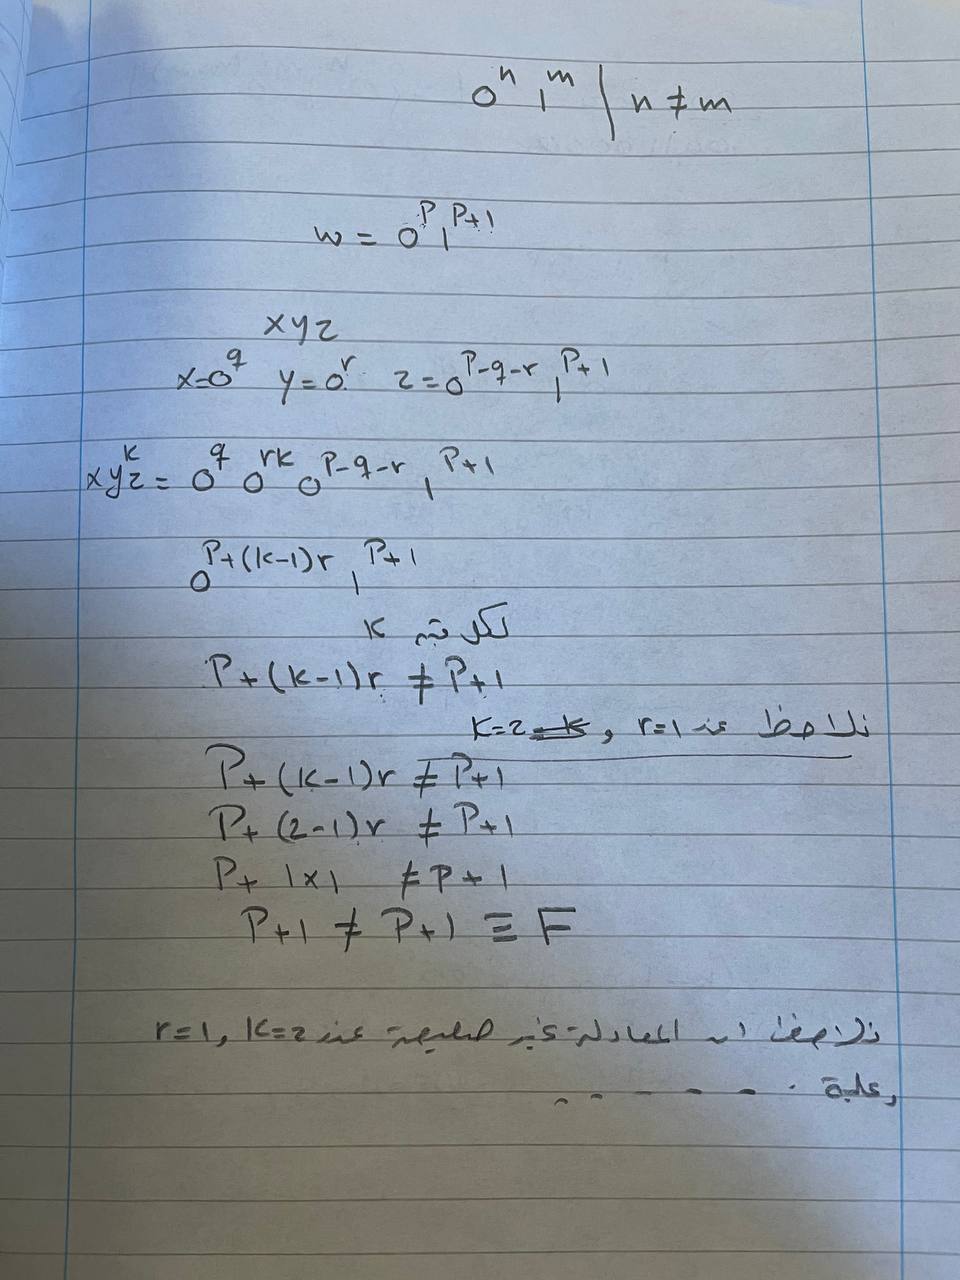 0ⁿ 1ᵐ | n ≠ m
w = 0^P 1^P+1
xyz
x=0^q y=0^r z=0^P-q-r 1^P+1
xy^k z = 0^q 0^rk 0^P-q-r 1^P+1
0^P+(k-1)r 1^P+1
لكل قيم k
P+(k-1)r ≠ P+1
نلاحظ عند r=1 , k=2
P+(k-1)r ≠ P+1
P+(2-1)r ≠ P+1
P+ 1×1 ≠ P+1
P+1 ≠ P+1 ≡ F
نلاحظ ان المعادلة غير صحيحة عند r=1, k=2
وعلية - - - - - -